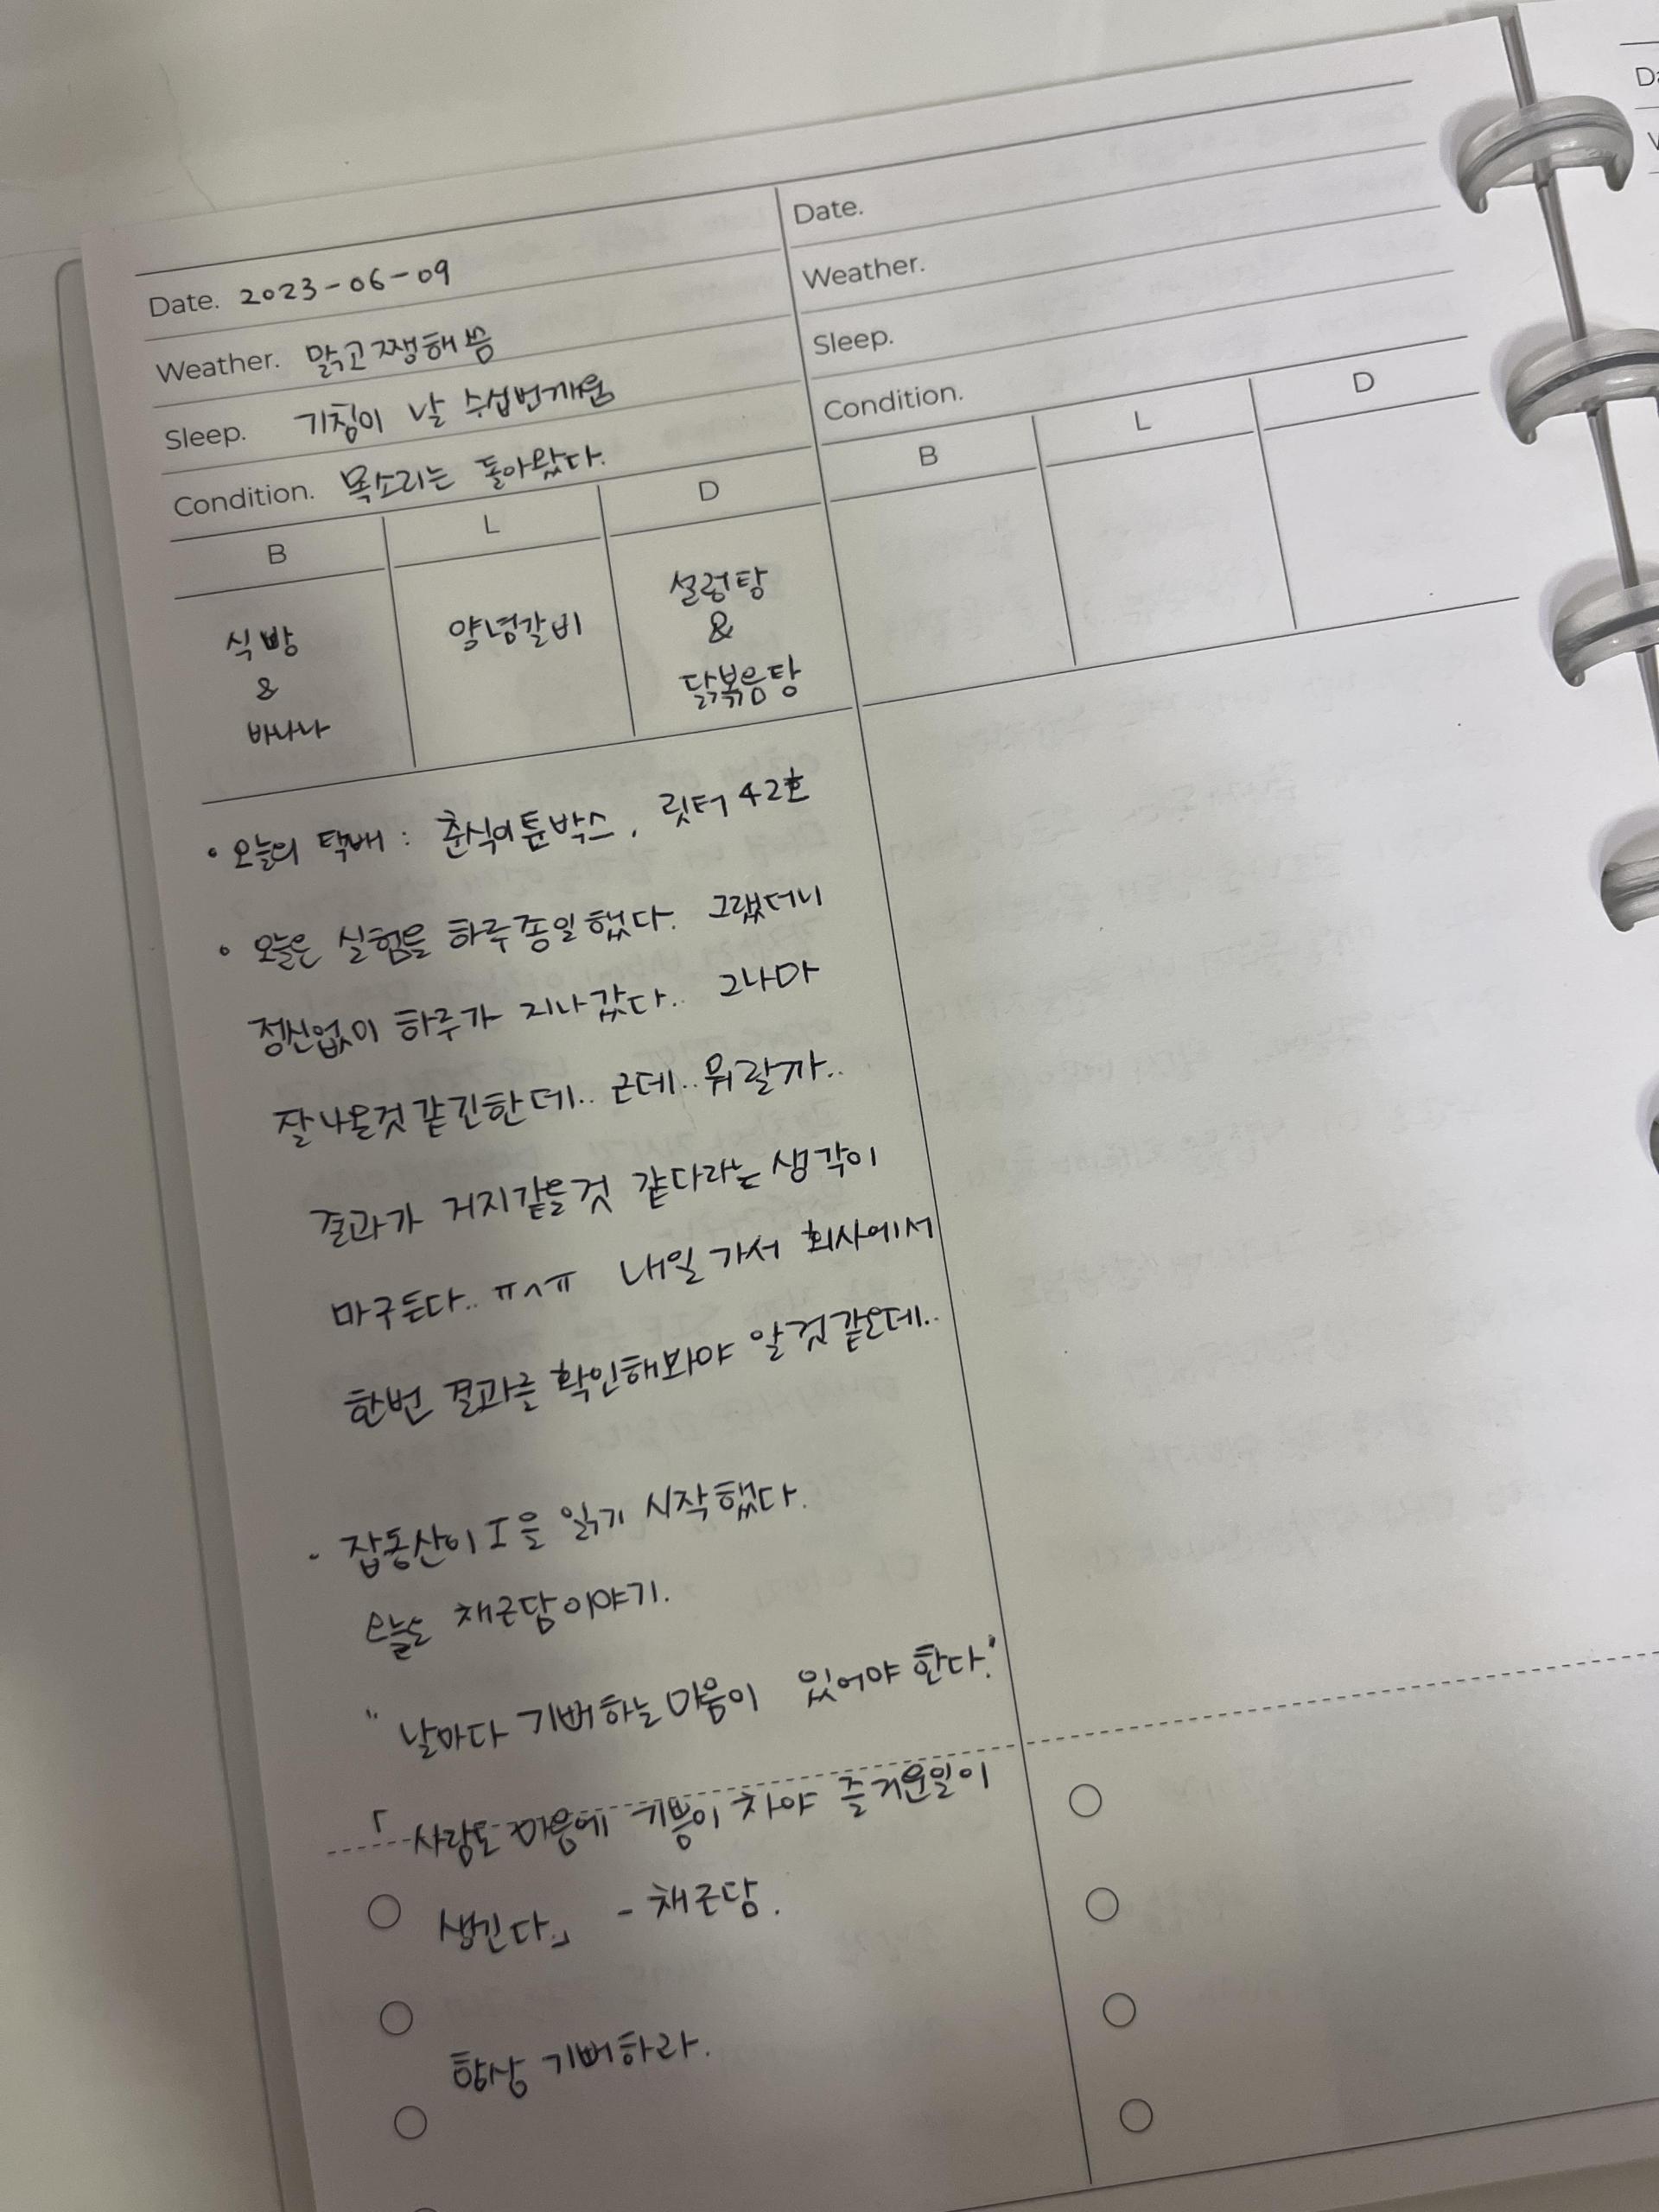 Date. 2023-06-09
Weather. 맑고 쨍해씀
Sleep. 기침이 날 수십번깨움
Condition. 목소리는 돌아왔다.
B L D
식빵
&
바나나
양념갈비
설렁탕
&
닭볶음탕
• 오늘의 택배 : 춘식이툰박스, 릿터 42호
• 오늘은 실험을 하루종일 했다. 그랬더니
정신없이 하루가 지나갔다.. 그나마
잘나올것 같긴한데.. 근데.. 뭐랄까..
결과가 거지같을것 같다라는 생각이
마구든다.. ㅠㅅㅠ 내일 가서 회사에서
한번 결과를 확인해봐야 알것같은데..
• 잡동산이 I을 읽기 시작했다.
오늘은 채근담이야기.
" 날마다 기뻐하는 마음이 있어야 한다."
「 사람도 마음에 기쁨이 차야 즐거운일이
생긴다.」 - 채근담.
항상 기뻐하라.
Date.
Weather.
Sleep.
Condition.
B L D
Da
W